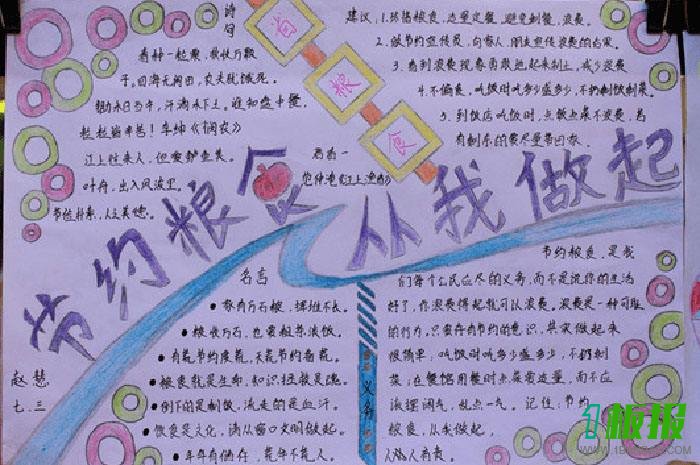 诗句
春种一粒粟，秋收万颗
子。四海无闲田，农夫犹饿死。
锄禾日当午，汗滴禾下土。谁知盘中餐，
粒粒皆辛苦！李绅《悯农》
江上往来人，但爱鲈鱼美。君看一
叶舟，出入风波里。
范仲淹《江上渔者》
省
粮
食
建议：1.珍惜粮食，适量定餐，避免剩餐，浪费。
2.做节约宣传员，向家人，朋友宣传浪费的
3.看到浪费现象勇敢起来制止，减少浪费
4.不偏食，吃饭时吃多少盛多少，不扔剩饭剩菜。
5.到饭店吃饭时，点散点菜不浪费，若
有剩余的要尽量带回家。
节约粮食 从我做起
赵慧
七.三
名言
粮收万石，也要粗茶淡饭。
有花节约度荒，无荒节约备荒。
粮食就是生命，知识拯救灵魂。
倒下的是剩饭，流走的是血汗。
饮食是文化，满从窗口文明做起。
年年有储存，荒年不荒人。
义务
节约粮食，是我
们每个公民应尽的义务，而不是说你的生活
好了，你浪费得起就可以浪费。浪费是一种可耻
的行为。只要存有节约的意识，其实做起来
很简单：吃饭时吃多少盛多少，不扔剩
菜；在餐馆用餐时点菜要适量，而不应
该摆阔气，乱点一气。记住：节约
粮食，从我做起。
人人有责。
1板报